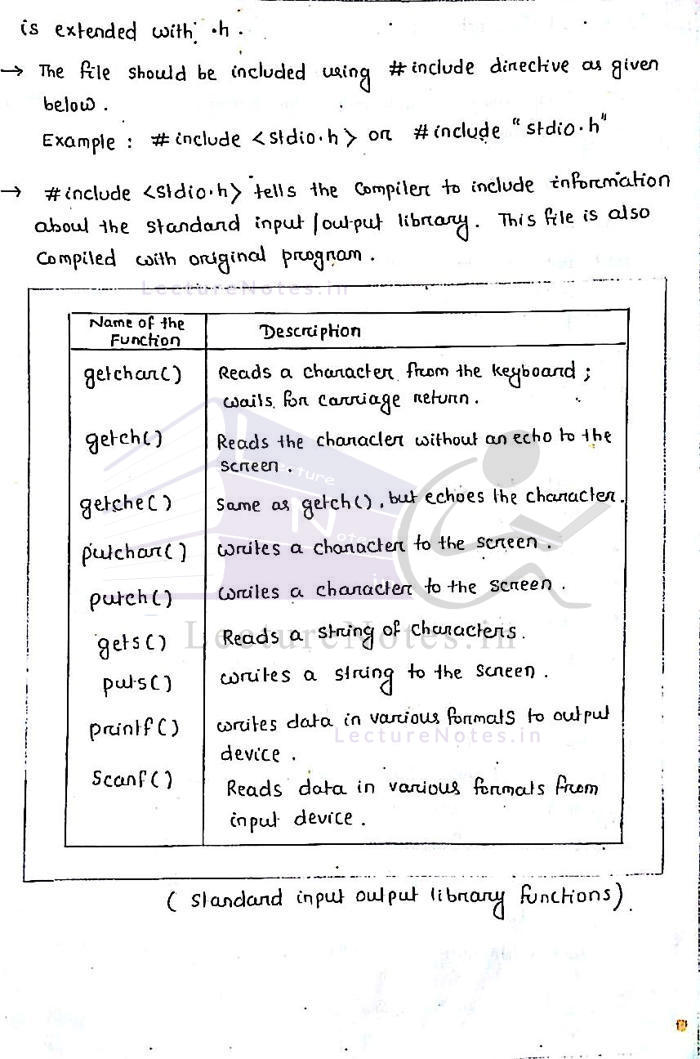 is extended with .h .
→ The file should be included using #include directive as given
below .
Example : #include <stdio.h> or #include "stdio.h"
→ #include <stdio.h> tells the Compiler to include information
about the standard input/output library. This file is also
Compiled with original program .
LectureNotes.in
Name of the
Function
Description
getchar()
Reads a character from the keyboard ;
waits for carriage return .
getch()
Reads the character without an echo to the
screen .
getche()
Same as getch(), but echoes the character.
putchar()
writes a character to the screen .
putch()
writes a character to the screen .
gets()
Reads a string of characters.
puts()
writes a string to the screen .
printf()
writes data in various formats to output
device .
Scanf()
Reads data in various formats from
input device .
Lecture
Notes
.in
LectureNotes.in
LectureNotes.in
( standard input output library functions)